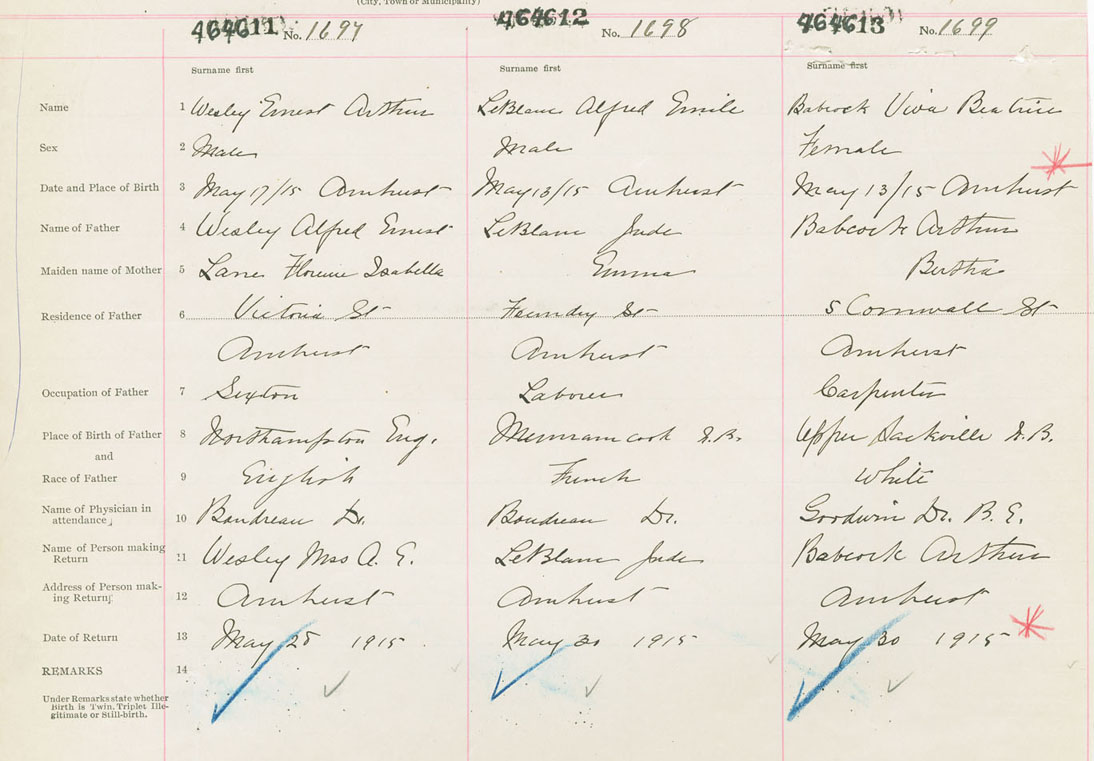 (City, Town or Municipality)
464611 No. 1697 464612 No. 1698 464613 No. 1699
Surname first Surname first Surname first
Name 1 Wesley Ernest Arthur LeBlanc Alfred Emile Babcock Viva Beatrice
Sex 2 Male Male Female
Date and Place of Birth 3 May 17/15 Amherst May 13/15 Amherst May 13/15 Amherst
Name of Father 4 Wesley Alfred Ernest LeBlanc Jude Babcock Arthur
Maiden name of Mother 5 Lane Florence Isabella Emma Bertha
Residence of Father 6 Victoria St Foundry St 5 Cornwall St
Amherst Amherst Amherst
Occupation of Father 7 Sexton Laborer Carpenter
Place of Birth of Father 8 Northampton Eng. Memramcook N.B. Upper Sackville N.B.
and
Race of Father 9 English French White
Name of Physician in
attendance 10 Boudreau Dr. Boudreau Dr. Goodwin Dr. B. E.
Name of Person making
Return 11 Wesley Mrs A. E. LeBlanc Jude Babcock Arthur
Address of Person mak-
ing Return 12 Amherst Amherst Amherst
Date of Return 13 May 28 1915 May 30 1915 May 30 1915
REMARKS 14
Under Remarks state whether
Birth is Twin, Triplet Ille-
gitimate or Still-birth.